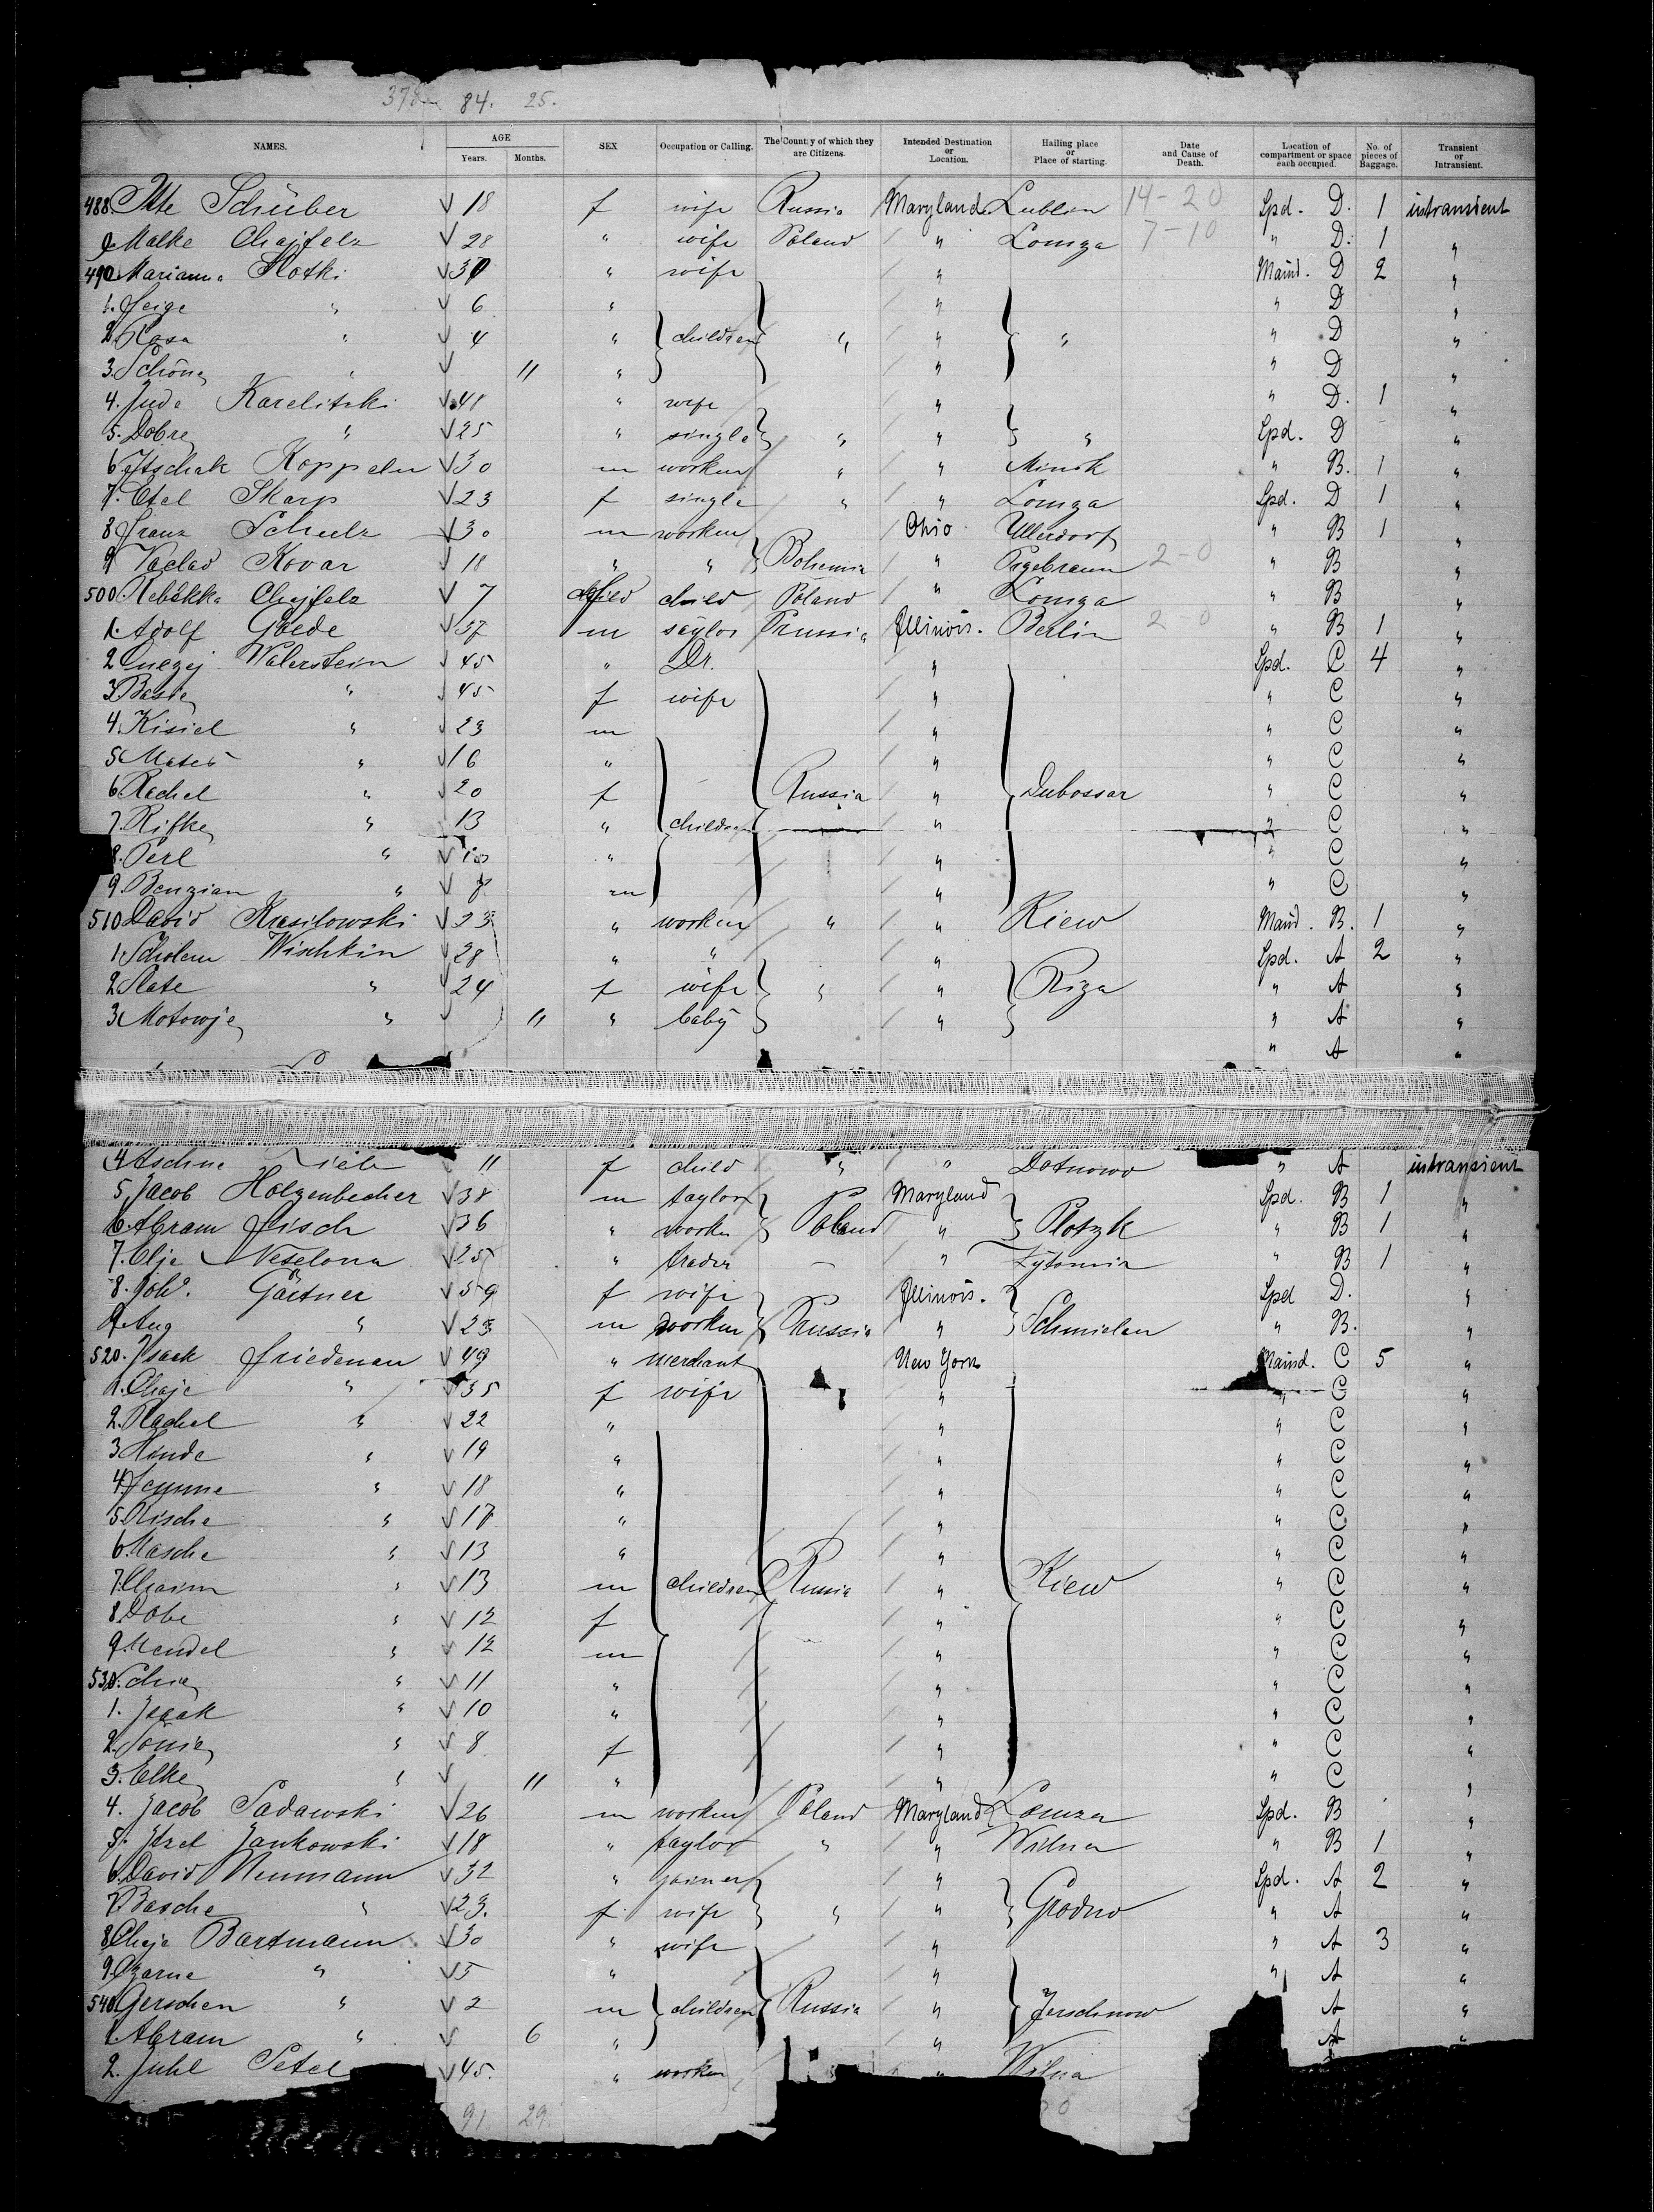 84. 25.
NAMES. AGE Years. Months. SEX Occupation or Calling. The Country of which they are Citizens. Intended Destination or Location. Hailing place or Place of starting. Date and Cause of Death. Location of compartment or space each occupied. No. of pieces of Baggage. Transient or Intransient.
488. Itte Schüber √ 18 f wife Russia Maryland Lublin 14-20 Spd. D. 1 intransient
9 Malke Chajfelz √ 28 " wife Poland " Lomza 7-10 " D. 1 "
490 Marianna Slotki √ " wife " Maind. D 2 "
1. Feige " √ 6 " " " D "
2. Rosa " √ 4 " children " " " " D "
3. Schöne " √ 11 " " " D "
4. Jude Karelitzki √ 48 " wife " " D. 1 "
5. Dobre " √ 25 " single " " " Spd. D "
6 Itschak Koppeln √ 30 m worker " " Minsk " B. 1 "
7. Etel Skarp √ 23 f single " " Lomza Spd. D 1 "
8 Franz Schulz √ 30 m worker Ohio Ullersdorf " B 1 "
9 Vaclav Kovar √ 18 " " Bohemia " Przebram 2-0 " B "
500 Rebekka Chajfelz √ 7 child child Poland " Lomza " B "
1. Adolf Goede √ 37 m saylor Prussia Illinois. Berlin 2 0 " B 1 "
2 Walerstein √ 45 " Dr. " Spd. C 4 "
3. Basse " √ 45 f wife " " C "
4. Kisiel " √ 23 m " " C "
5 Mates " √ 16 " " " C "
6. Rachel " √ 20 f Russia " Dubossar " C "
7. Rifke " 13 " children " " C "
8. Perl " √ 10 " " " C "
9. Benzian " √ 8 m " " C "
510 David Krasilowski √ 23 " worker " " Kiew Maind. B. 1 "
1. Scholem Wischkin √ 28 " " " Spd. A 2 "
2 Slate " √ 24 f wife " " Riga " A "
3 Motowje " √ 11 " baby " " A "
" A "
4 Aschne √ 11 f child " " Dotnowo " A intransient
5. Jacob Holzenbecher √ 38 m taylor Maryland Spd. B 1 "
6. Abram Fisch √ 36 " worker Poland " Plotzk " B 1 "
7. Elje Neselona √ 25 " trader " Zytomir " B 1 "
8. Joh. Gärtner √ 59 f wife Illinois. Spd D. "
9. Aug " √ 23 m worker Prussia " Schmielau " B. "
520. Isaak Friedman √ 49 " merchant New York Maind. C 5 "
1. Chaje " √ 35 f wife " " C "
2. Rachel " √ 22 " " " C "
3 Hinde " √ 19 " " " C "
4. √ 18 " " " C "
5. Rische " √ 17 " " " C "
6. Masche " √ 13 " " " C "
7. Chaim " √ 13 m children Russia " Kiew " C "
8. Dobe " √ 12 f " " C "
9. Mendel " √ 12 m " " C "
530. " √ 11 " " " C "
1. Isaak " √ 10 " " " C "
2. Sonie " √ 8 f " " C "
3. Elke " √ 11 " " " C "
4. Jacob Sadawski √ 26 m worker Poland Maryland Lomza Spd. B "
5. Itzel Jankowski √ 18 " taylor " " Wilna " B 1 "
6. David Neumann √ 32 " joiner " Spd. A 2 "
7. Basche " √ 23. f wife " " Grodno " A "
8. Chaje Bartmann √ 30 " wife " " A 3 "
9. Czarne " √ 5 " " " A "
540. Gerschen " √ 2 m children Russia " Jerschnow A "
1. Abram " √ 6 " " A "
2. Juhl Setel √ 45. " worker " Wilna
91. 29.